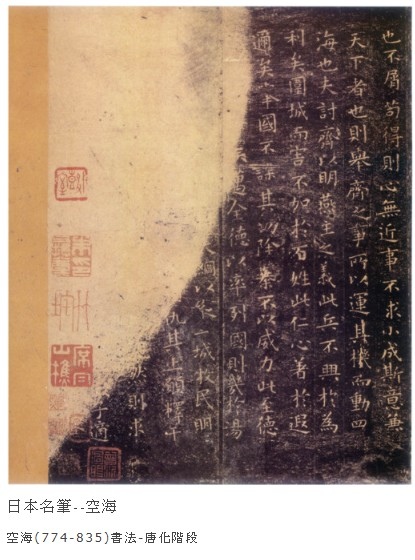 也不屑苟得則心無近事不求小成斯意兼
天下者也則舉齊之事所以運其機而動四
海也夫討齊以明燕主之義此兵不興於為
利矣圍城而害不加於百姓此仁心著於遐
邇矣舉國不謀其功除暴不以威力此至德
邁全德以率列國則幾於湯
綱以縱二城收民明
仇其上願釋干
則求
子適
日本名筆--空海
空海(774-835)書法-唐化階段